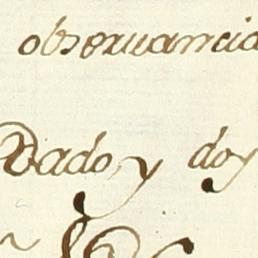 observancia
Dado, y doy